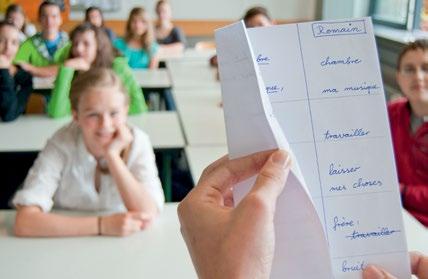 Romain
chambre
ma musique
travailler
laisser
mes choses
frère:
travailler
bruit